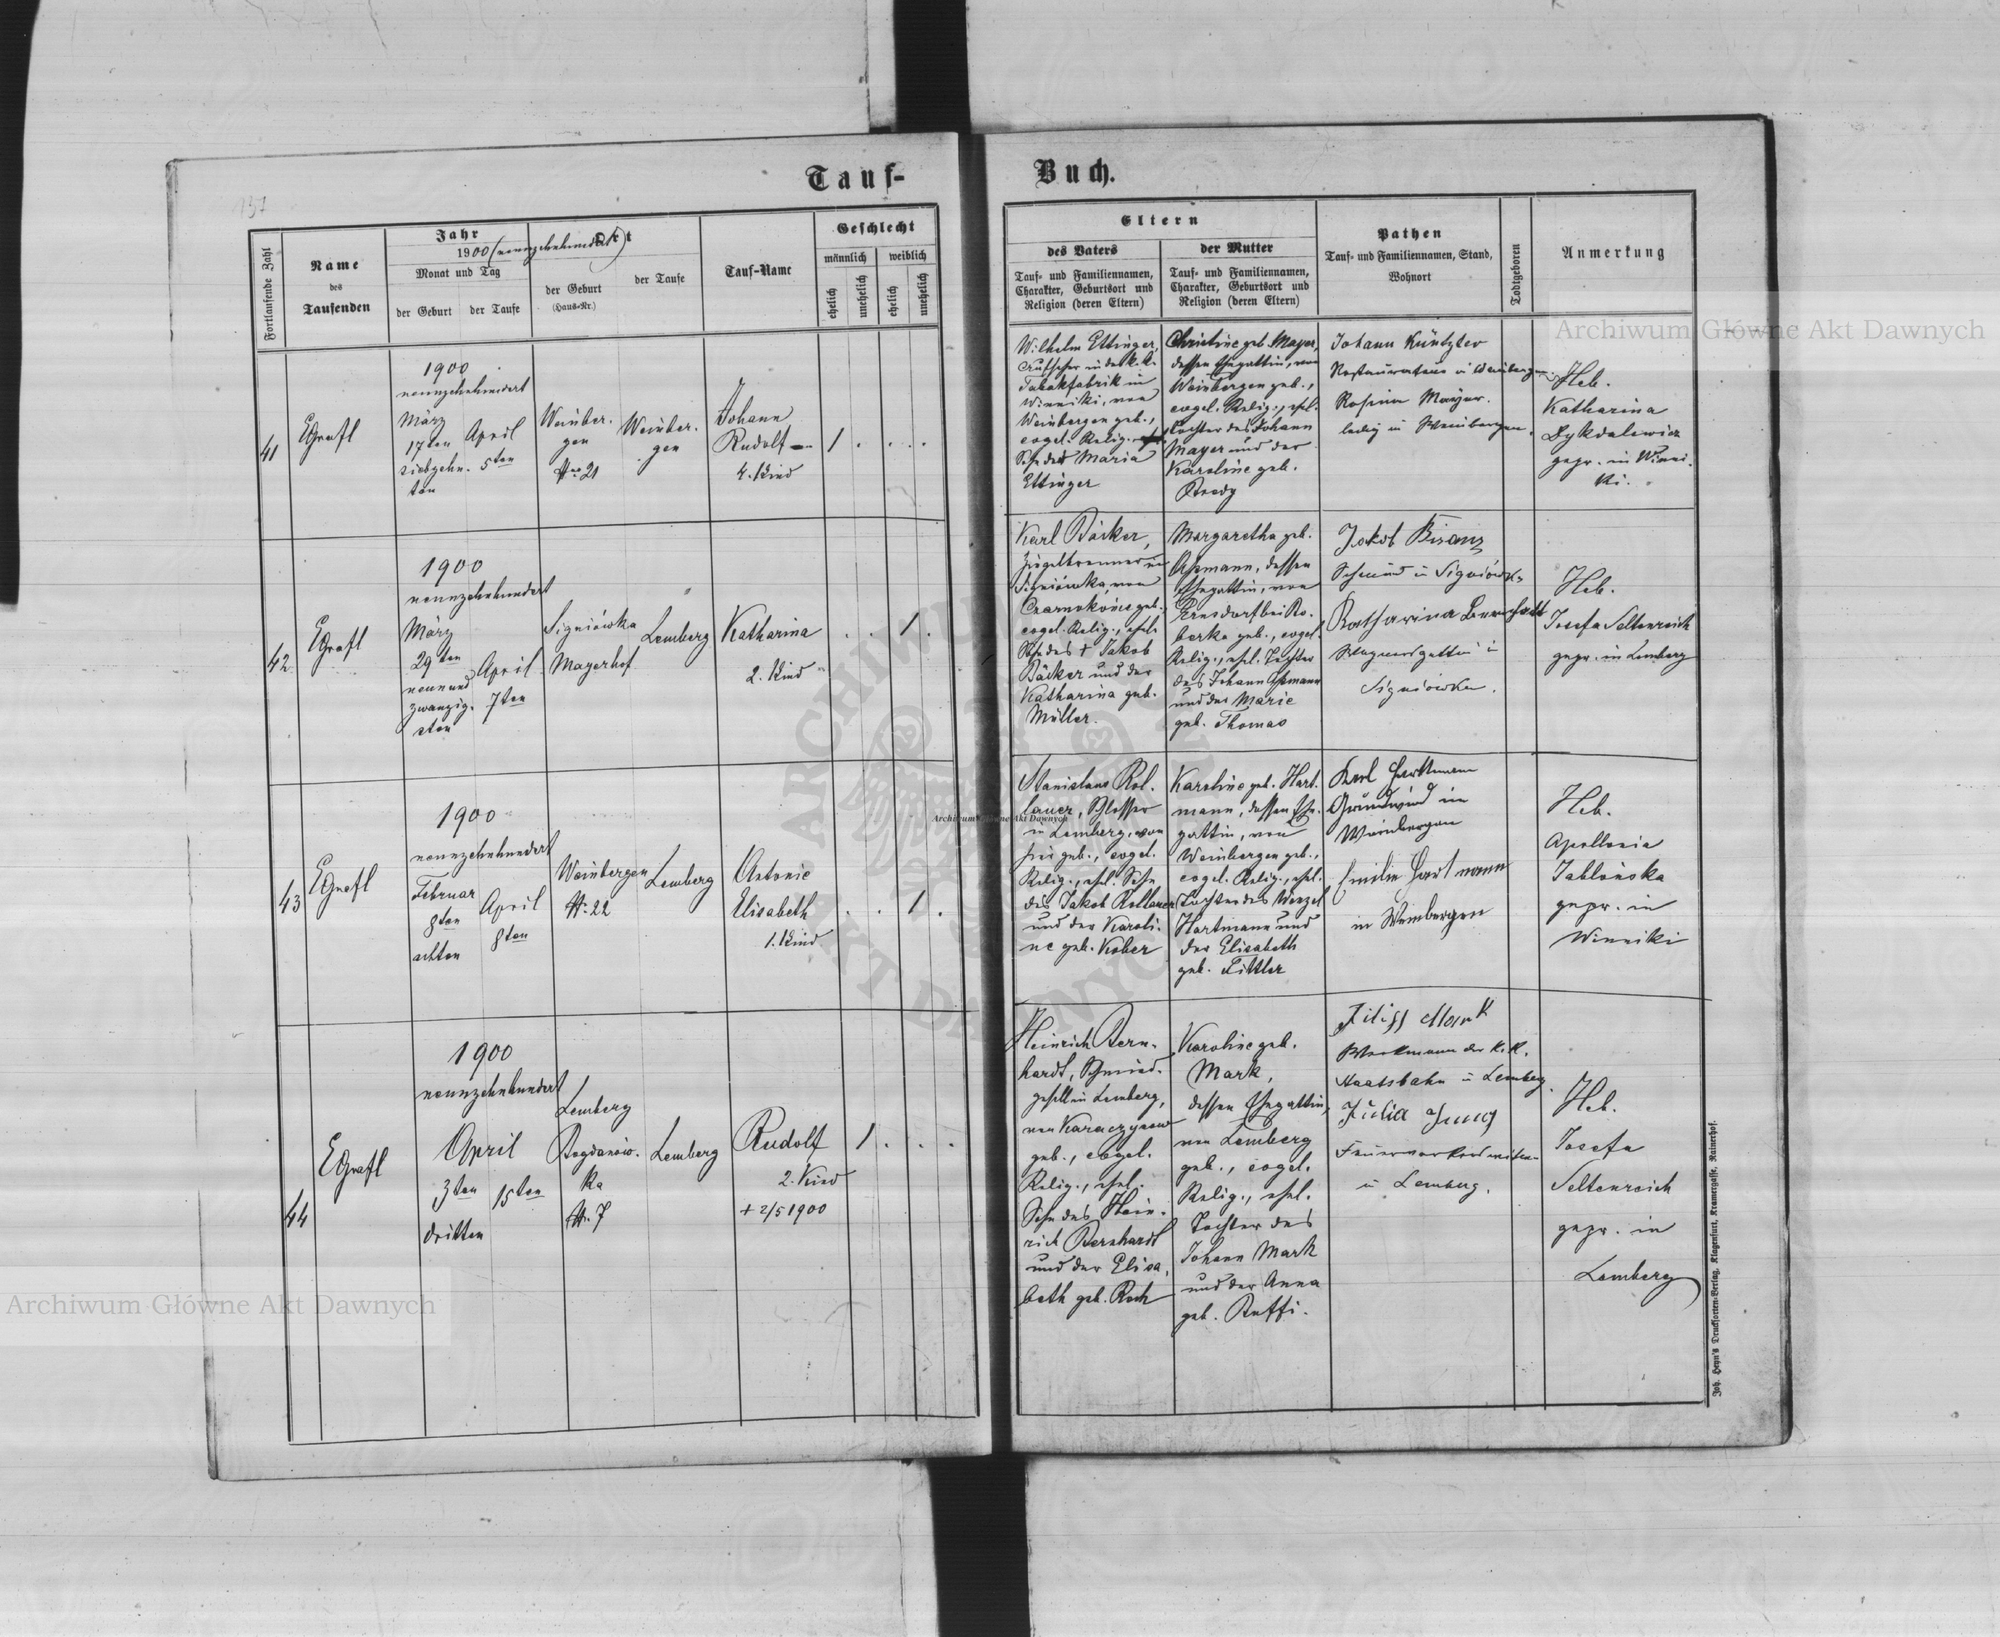 Tauf-
Buch.
137
Fortlaufende Zahl
Name
des
Taufenden
Jahr
1900 (neunzehnhundert)
Monat und Tag
der Geburt
der Taufe
Ort
der Geburt
(Haus-Nr.)
der Taufe
Tauf-Name
Geschlecht
männlich
weiblich
ehelich
unehelich
ehelich
unehelich
41
1900
neunzehnhundert
März
17ten
siebzehn-
ten
April
5ten
Weinber-
gen
No 21
Weinber-
gen
Johann
Rudolf
4. Kind
1 . . .
42
1900
neunzehnhundert
März
29ten
neunund
zwanzig-
sten
April
7ten
Signiówka
Mayerhof
Lemberg
Katharina
2. Kind
. . 1 .
43
1900
neunzehnhundert
Februar
8ten
achten
April
8ten
Weinbergen
N. 22
Lemberg
Antonie
Elisabeth
1. Kind
. . 1 .
44
1900
neunzehnhundert
April
3ten
dritten
15ten
Lemberg
Bogdanów-
ka
N. 7
Lemberg
Rudolf
2. Kind
+ 2/5 1900
1 . . .
Eltern
des Vaters
Tauf- und Familiennamen,
Charakter, Geburtsort und
Religion (deren Eltern)
der Mutter
Tauf- und Familiennamen,
Charakter, Geburtsort und
Religion (deren Eltern)
Pathen
Tauf- und Familiennamen, Stand,
Wohnort
Todtgeboren
Anmerkung
Wilhelm Ettinger,
in der k.k.
Tabakfabrik in
Winniki, von
Weinbergen geb.,
evgel. Relig.,
Sohn der Maria
Ettinger
Christine geb. Mayer,
dessen Ehegattin, von
Weinbergen geb.,
evgel. Relig., ehel.
Tochter des Johann
Mayer und der
Karoline geb.
Bredy
Johann Küntzler
Restaurateur in Weinbergen
Rosina Mayer.
ledig in Weinbergen.
Heb.
Katharina
Dykdalewicz
gepr. in Winni-
ki.
Karl Bäcker,
Ziegelbrenner in
Signiówka, von
Czarnokońce geb.,
evgel. Relig., ehel.
Sohn des + Jakob
Bäcker und der
Katharina geb.
Müller.
Margaretha geb.
Assmann, dessen
Ehegattin, von
Ernsdorf bei Bo-
berka geb., evgel.
Relig., ehel. Tochter
des Johann Assmann
und der Marie
geb. Thomas
Jakob Bisanz
Schmied in Signiówka
Katharina Bernhardt
Wagnersgattin in
Signiówka.
Heb.
Josefa Seltenreich
gepr. in Lemberg
Stanislaus Rol-
lauer, Schlosser
in Lemberg, von
hier geb., evgel.
Relig., ehel. Sohn
des Jakob Rollauer
und der Karoli-
ne geb. Kober
Karoline geb. Hart-
mann, dessen Ehe-
gattin, von
Weinbergen geb.,
evgel. Relig., ehel.
Tochter des Wenzel
Hartmann und
der Elisabeth
geb. Littler
Karl Hartmann
Grundwird in
Weinbergen
Emilie Hartmann
in Weinbergen
Heb.
Apollonia
Jabłońska
gepr. in
Winniki
Heinrich Bern-
hardt, Schmied-
gesell in Lemberg,
von
geb., evgel.
Relig., ehel.
Sohn des Hein-
rich Bernhardt
und der Elisa-
beth geb. Koch
Karoline geb.
Mark,
dessen Ehegattin,
von Lemberg
geb., evgel.
Relig., ehel.
Tochter des
Johann Mark
und der Anna
geb. Ruffi.
Filipp Mark
Werkmann der K.K.
Staatsbahn in Lemberg.
Julia Jung
in Lemberg.
Heb.
Josefa
Seltenreich
gepr. in
Lemberg
Joh. Heyn's Drucksorten-Verlag, Klagenfurt, Kramergasse, Rainerhof.
Archiwum Główne Akt Dawnych
Archiwum Główne Akt Dawnych
Archiwum Główne Akt Dawnych